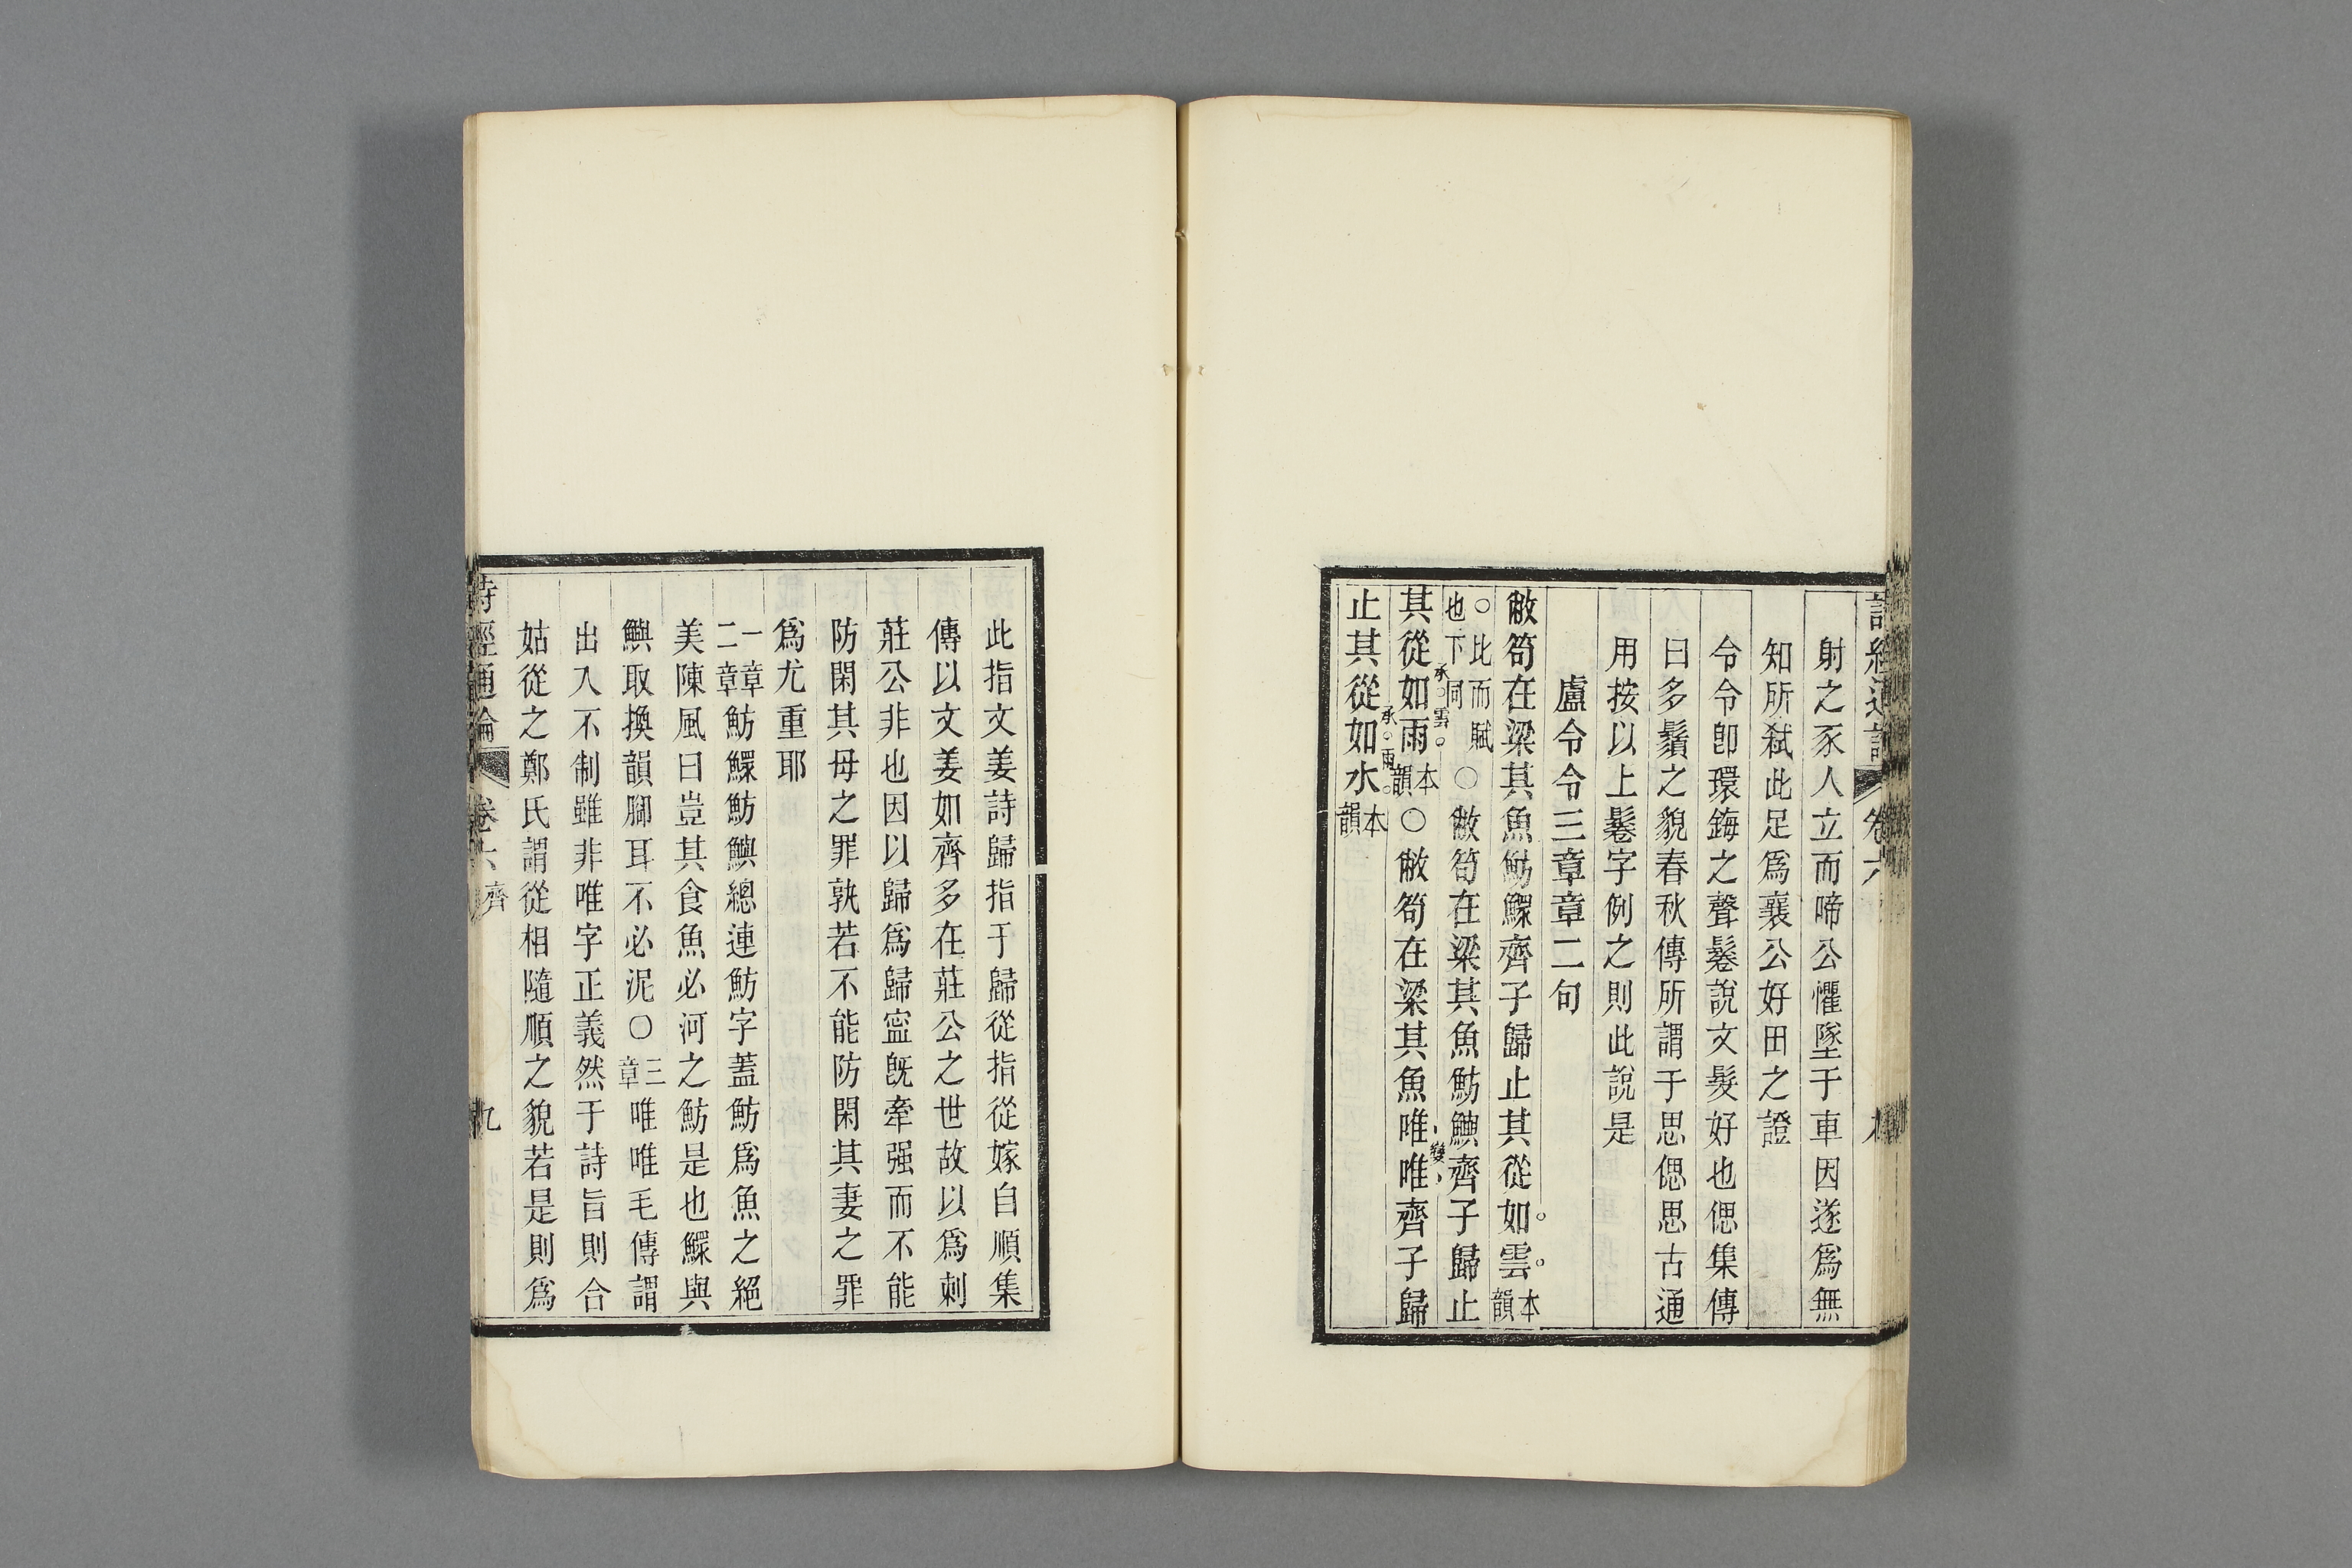 射之豕人立而啼公懼墜于車因遂爲無
知所弑此足爲襄公好田之證
令令卽環鋂之聲鬈說文髮好也偲集傳
曰多鬚之貌春秋傳所謂于思偲思古通
用按以上鬈字例之則此說是
盧令令三章章二句
敝笱在梁其魚魴鰥齊子歸止其從如雲本韻
○比而賦也下同○敝笱在梁其魚魴鱮齊子歸止
其從如雨本韻○敝笱在梁其魚唯唯齊子歸
承雲
變
止其從如水本韻
承雨
此指文姜詩歸指于歸從指從嫁自順集
傳以文姜如齊多在莊公之世故以爲刺
莊公非也因以歸爲歸寍旣牽强而不能
防閑其母之罪孰若不能防閑其妻之罪
爲尤重耶
一章二章魴鰥魴鱮總連魴字蓋魴爲魚之絕
美陳風曰豈其食魚必河之魴是也鰥與
鱮取換韻腳耳不必泥○三章唯唯毛傳謂
出入不制雖非唯字正義然于詩旨則合
姑從之鄭氏謂從相隨順之貌若是則爲
詩經通論 卷六 齊 九